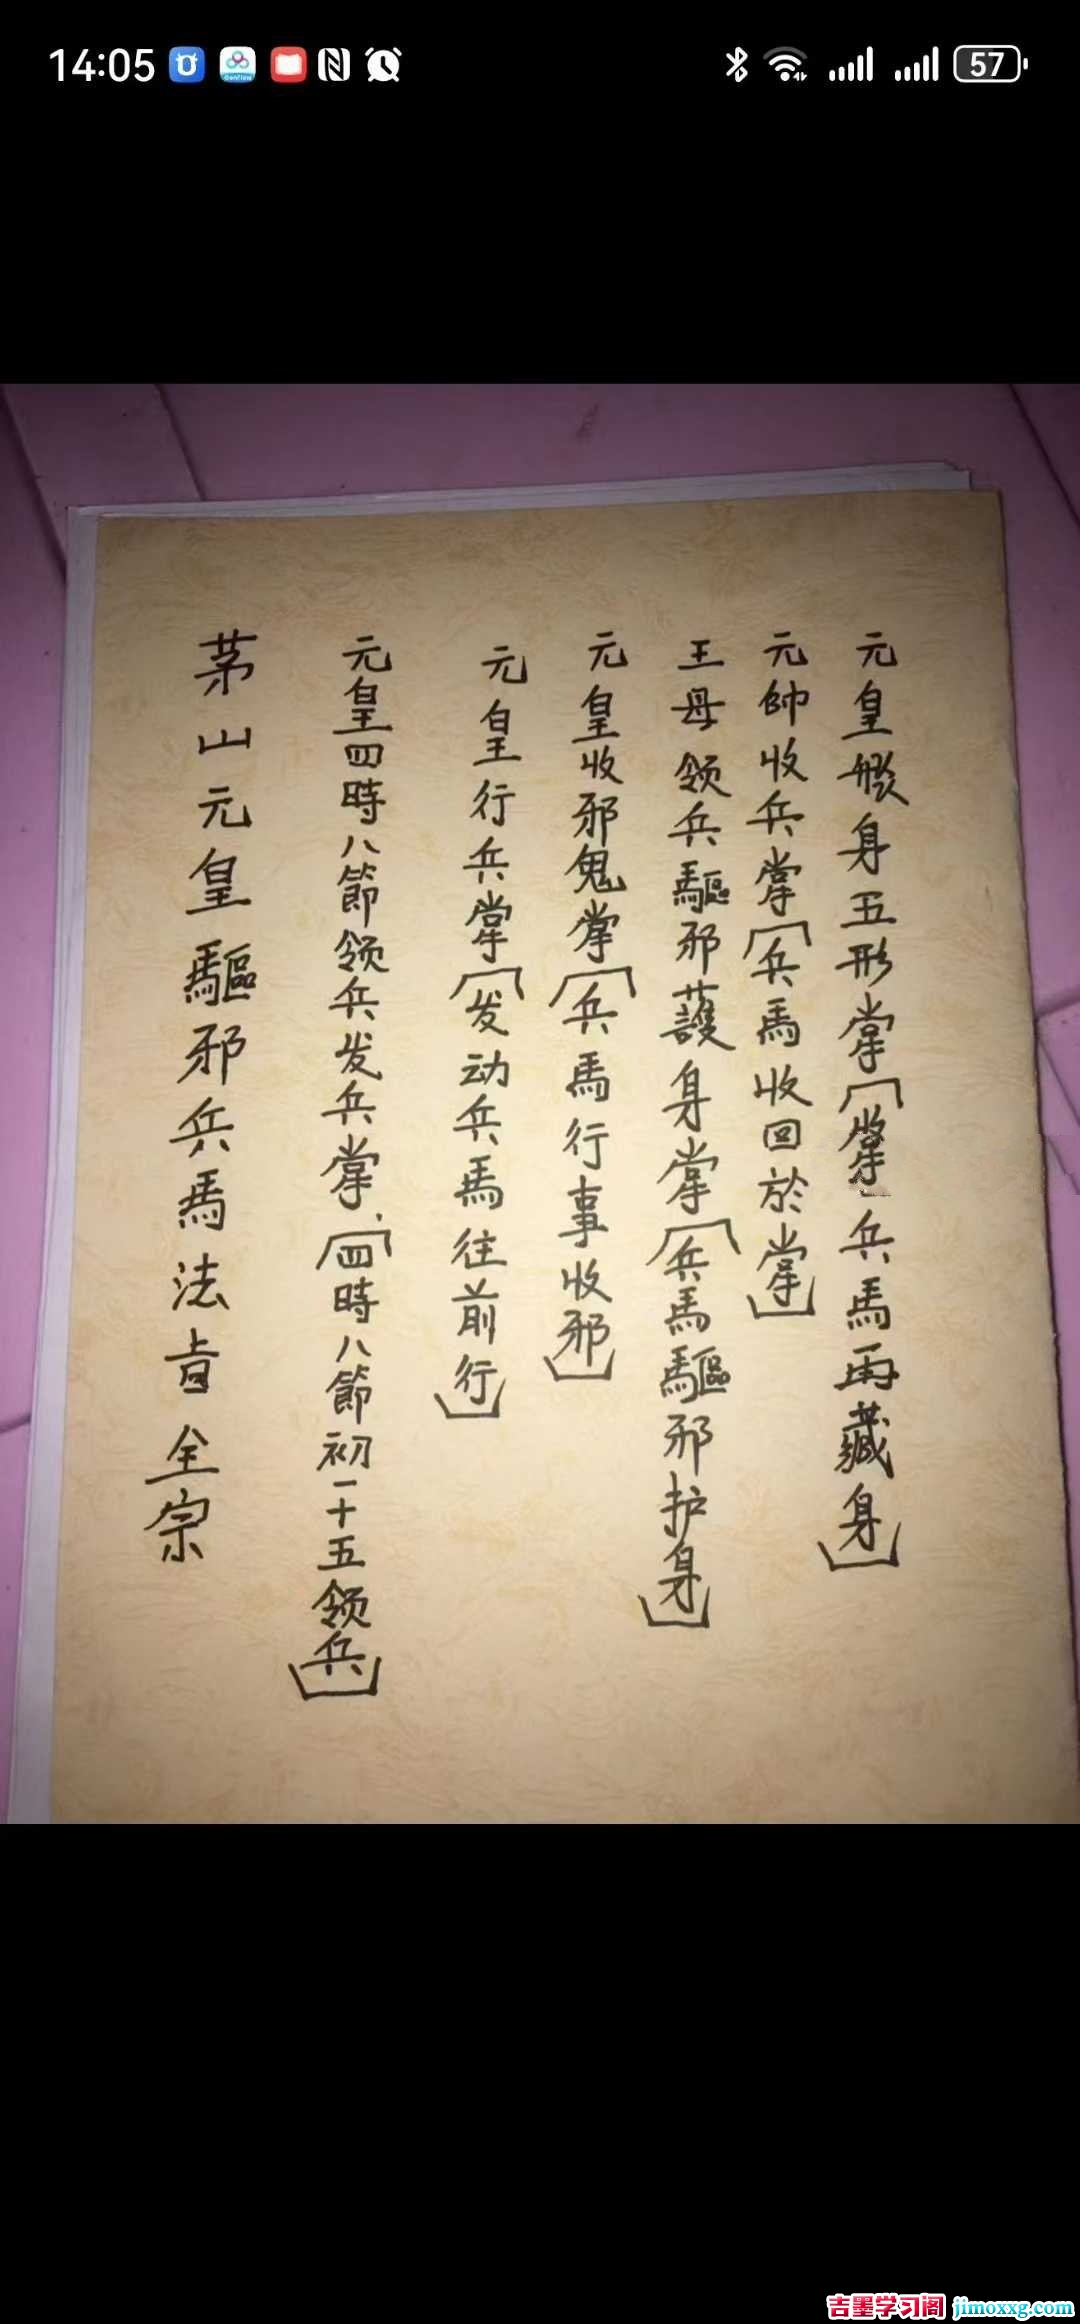 14:05
57
元皇艘身五形掌(掌兵馬再藏身)
元帥收兵掌(兵馬收回於掌)
王母领兵驅邪護身掌(兵馬驅邪护身)
元皇收邪鬼掌(兵馬行事收邪)
元皇行兵掌(发动兵馬往前行)
元皇四時八節领兵发兵掌、(四時八節初一十五领兵)
茅山元皇驅邪兵馬法旨全宗
吉墨学习阁 jimoxxg.com